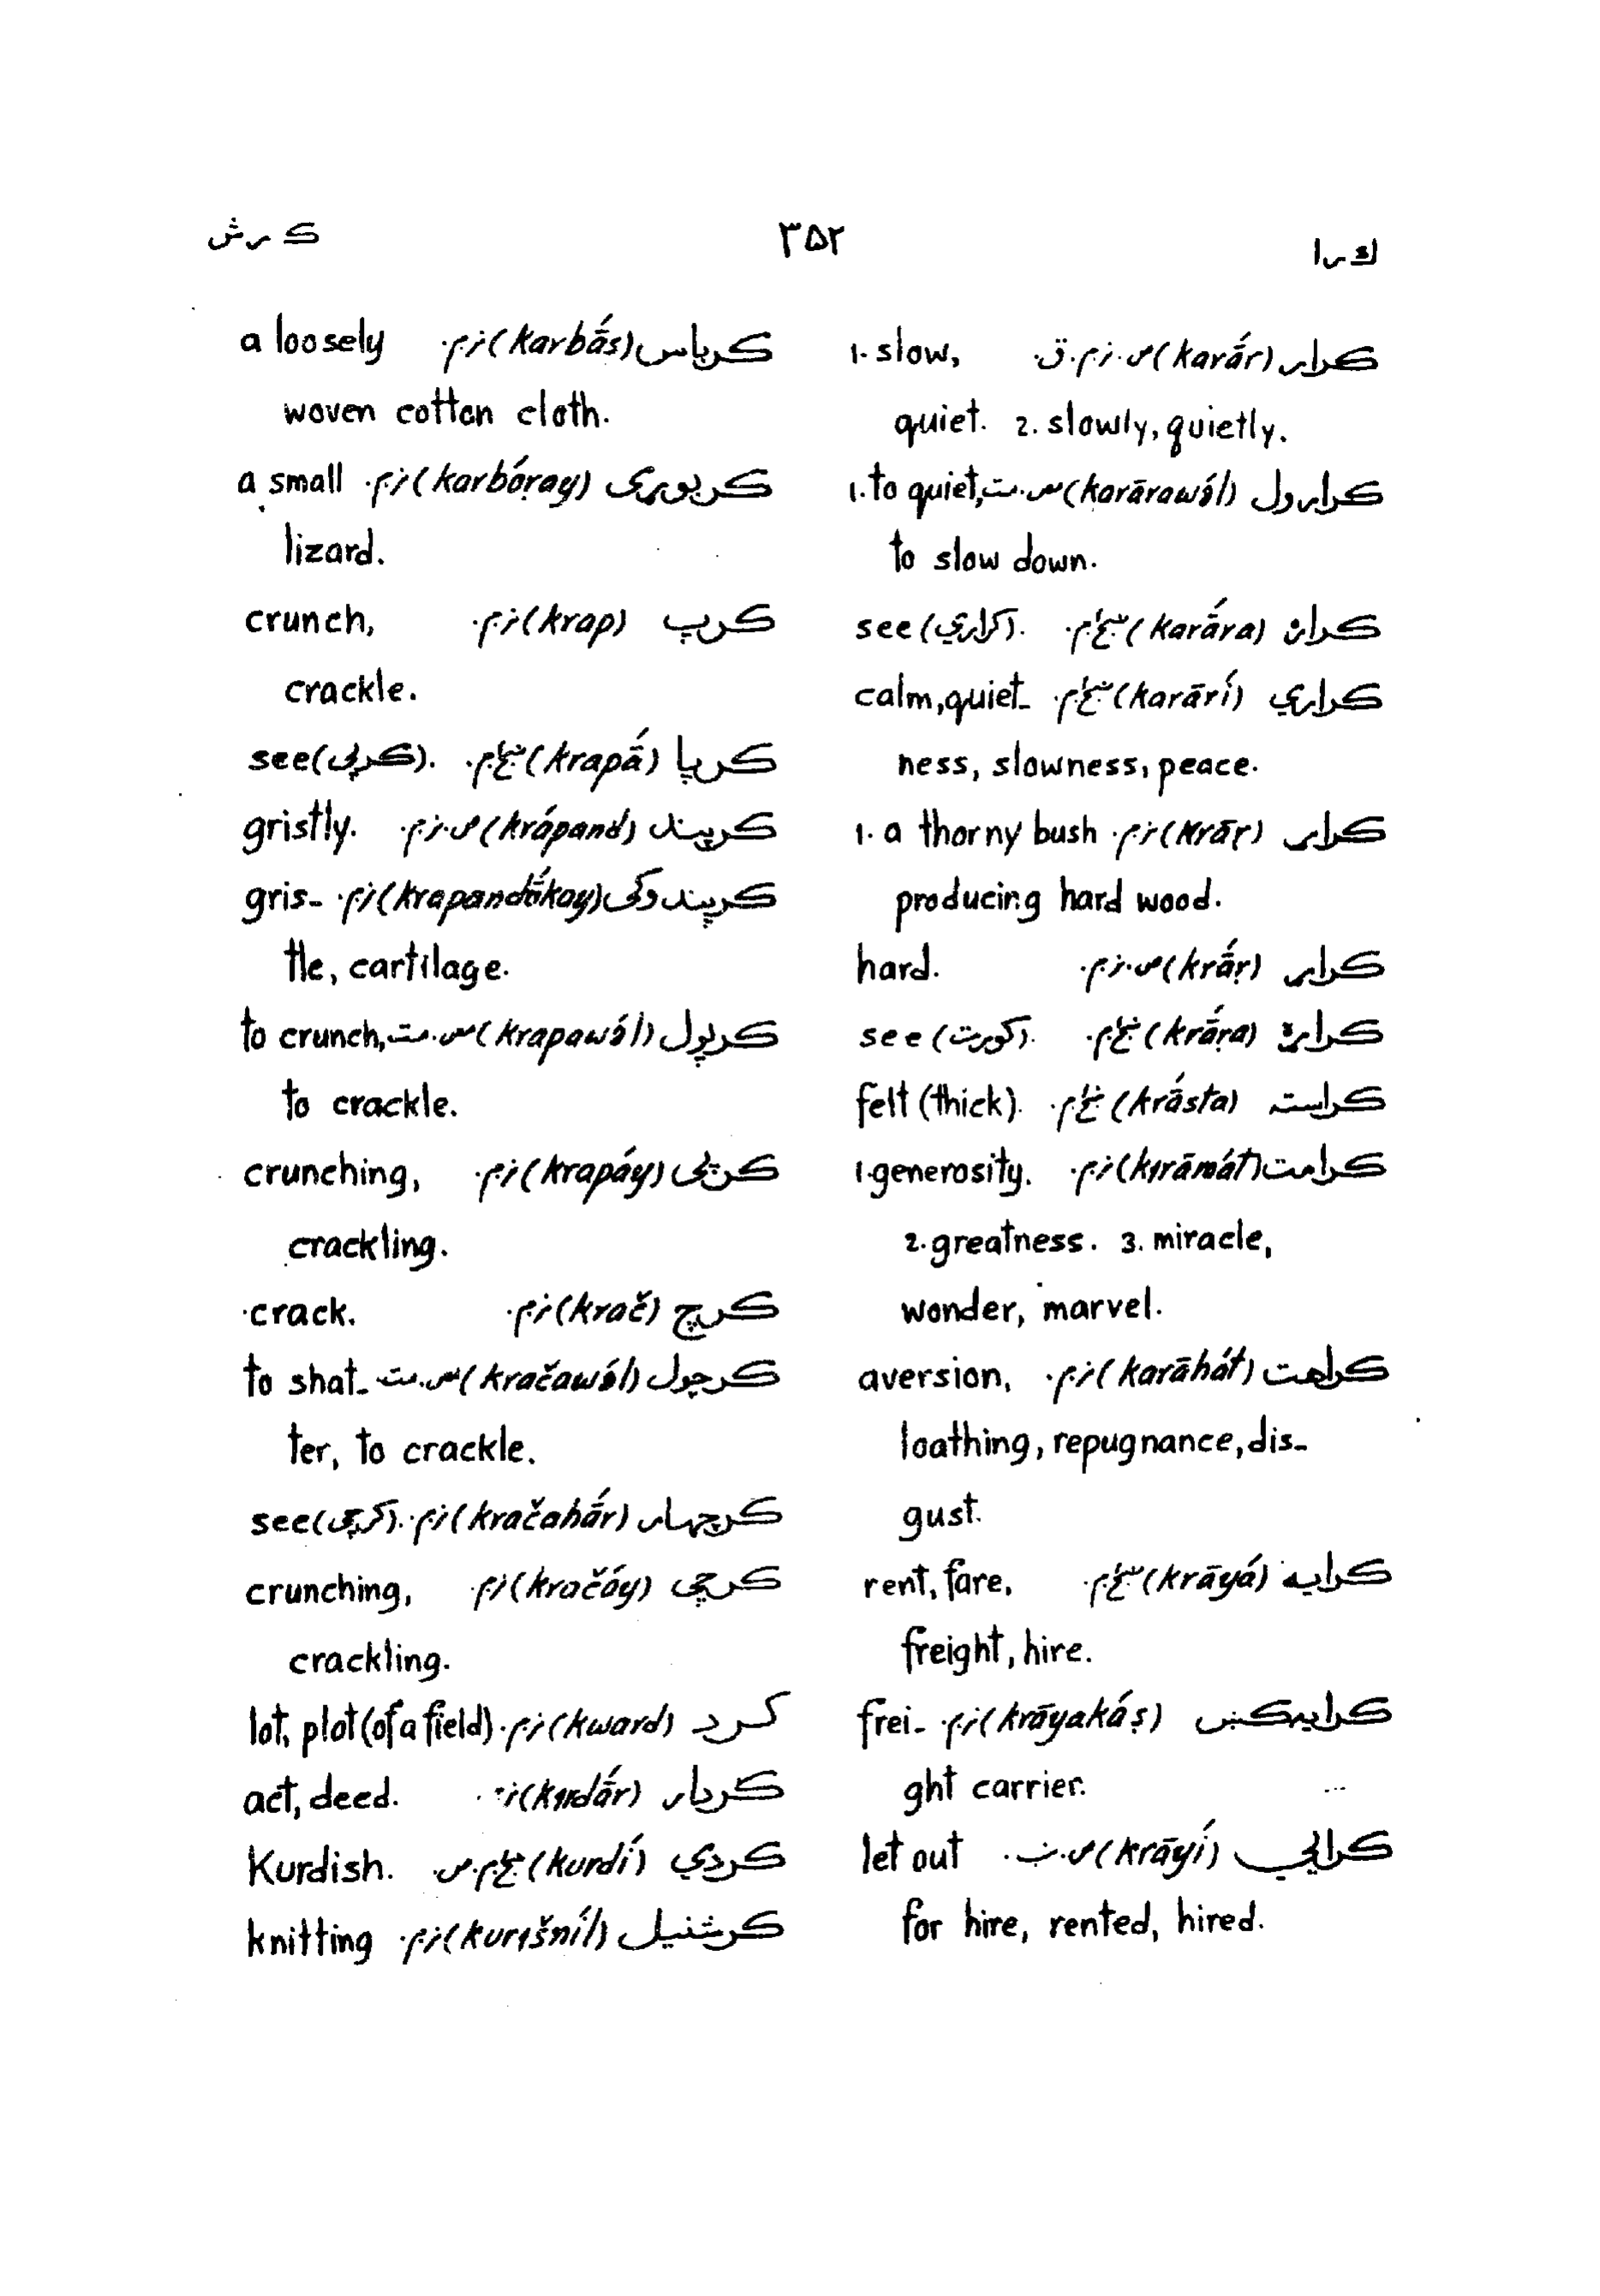 ک را
۳۵۲
ک رش
کرار (karā́r) ص. ق. 1. slow,
quiet. 2. slowly, quietly.
کرارول (karārawə́l) 1. to quiet,
to slow down.
کراره (karā́ra) see (کراري).
کراري (karārí) calm, quiet-
ness, slowness, peace.
کراړ (krāṛ) 1. a thorny bush
producing hard wood.
کراړ (krā́ṛ) hard.
کراړه (krā́ṛa) see (کورت).
کراسته (krā́sta) felt (thick).
کرامت (kırāmát) 1. generosity.
2. greatness. 3. miracle,
wonder, marvel.
کراهت (karāhát) aversion,
loathing, repugnance, dis-
gust.
کرایه (krāyá) rent, fare,
freight, hire.
کرایه‌کښ (krāyakáṣ) frei-
ght carrier.
کرایي (krāyí) let out
for hire, rented, hired.
کرباس (karbā́s) a loosely
woven cotton cloth.
کربوړی (karbóṛay) a small
lizard.
کرپ (krap) crunch,
crackle.
کرپا (krapā́) see (کرپی).
کرپند (krápand) gristly.
کرپندوکی (krapandṓkay) gris-
tle, cartilage.
کرپول (krapawə́l) to crunch,
to crackle.
کرپی (krapáy) crunching,
crackling.
کرچ (krač) crack.
کرچول (kračawə́l) to shat-
ter, to crackle.
کرچهار (kračahā́r) see (کرچی).
کرچی (kračáy) crunching,
crackling.
کرد (kward) lot, plot (of a field)
کردار (kırdā́r) act, deed.
کردي (kurdí) Kurdish.
کرشنیل (kurıšníl) knitting